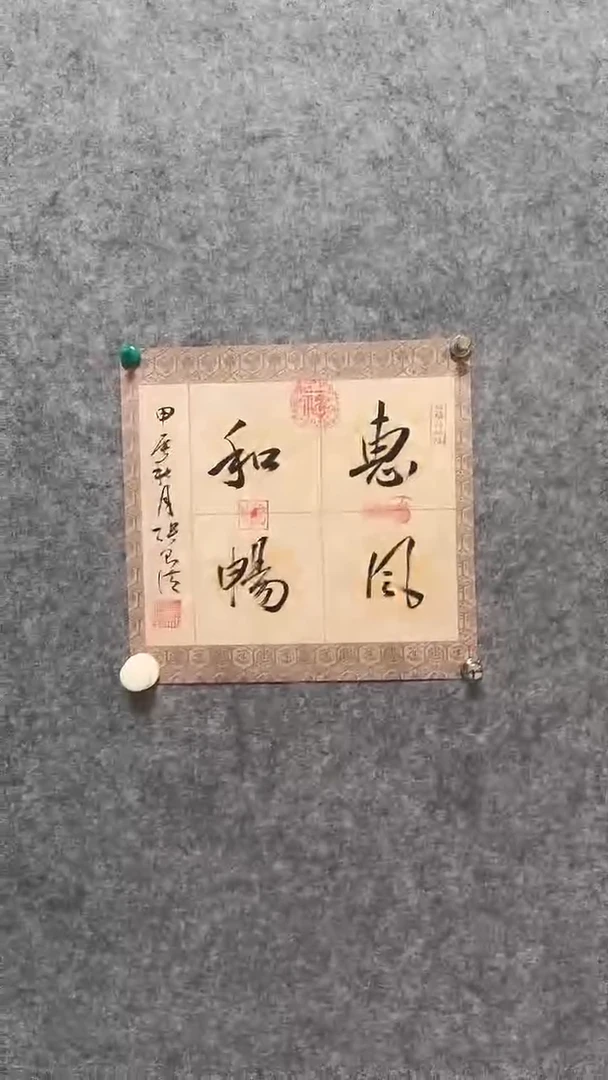 惠風
和暢
甲辰秋月